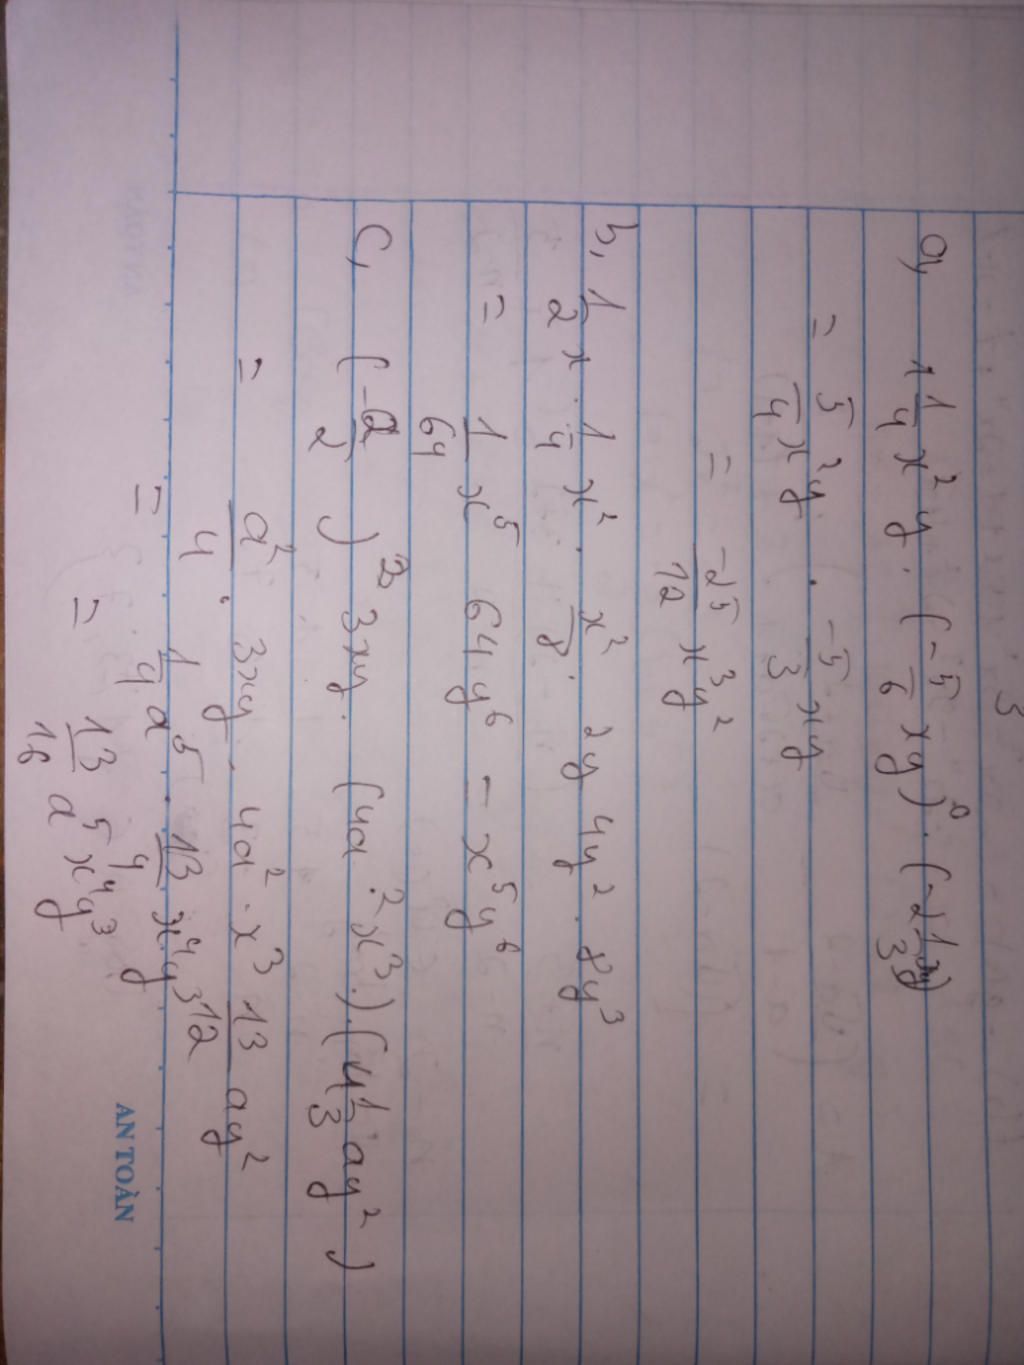 3
a, 1 1/4 x² y . (- 5/6 xy)⁰ . (-2 1/3 xy)
= 5/4 x² y . -5/3 xy
= -25/12 x³ y²
b, 1/2 x . 1/4 x² . x²/8 . 2y 4y² . 8y³
= 1/64 x⁵ 64 y⁶ = x⁵ y⁶
c, (-a/2)² 3xy . (4a² x³.) . (4 1/3 ay²)
= a²/4 . 3xy . 4a² . x³ 13/12 ay²
= 1/4 a⁵ . 13/4 x⁴ y³
= 13/16 a⁵ x⁴ y³
AN TOÀN